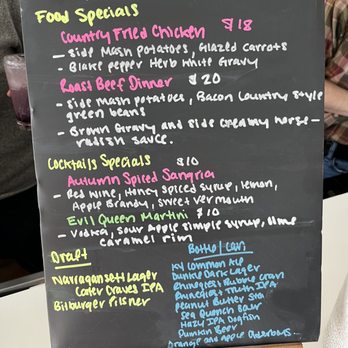 Food Specials
Country Fried Chicken $18
- Side Mash Potatoes, Glazed Carrots
- Blake pepper Herb White Gravy
Roast Beef Dinner $20
- Side mash potatoes, Bacon Country style
green beans
- Brown Gravy and side creamy horse-
radish sauce.
Cocktails Specials $10
Autumn Spiced Sangria
- Red Wine, Honey Spiced Syrup, lemon,
Apple Brandy, sweet vermouth
Evil Queen Martini $10
- Vodka, sour Apple simple syrup, lime
caramel rim
Draft
Narragansett Lager
Graves IPA
Bitburger Pilsner
Bottle/Can
KY Common Ale
Dunkel Dark Lager
Rhinegeist Bubble Cran
Rhinegeist Truth IPA
Peanut Butter
Sea Quench Sour
Hazy IPA Dogfish
Pumkin Beer
Orange and Apple